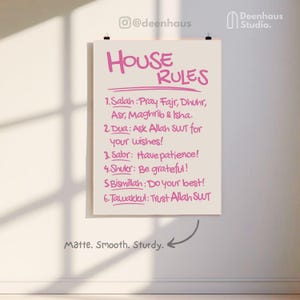 @deenhaus
Deenhaus
Studio.
HOUSE
RULES
1. Salah : Pray Fajr, Dhuhr,
Asr, Maghrib & Isha.
2. Dua : Ask Allah SWT for
your wishes!
3. Sabr : Have patience!
4. Shukr : Be grateful!
5. Bismillah : Do your best!
6. Tawakkul : Trust Allah SWT
Matte. Smooth. Sturdy.